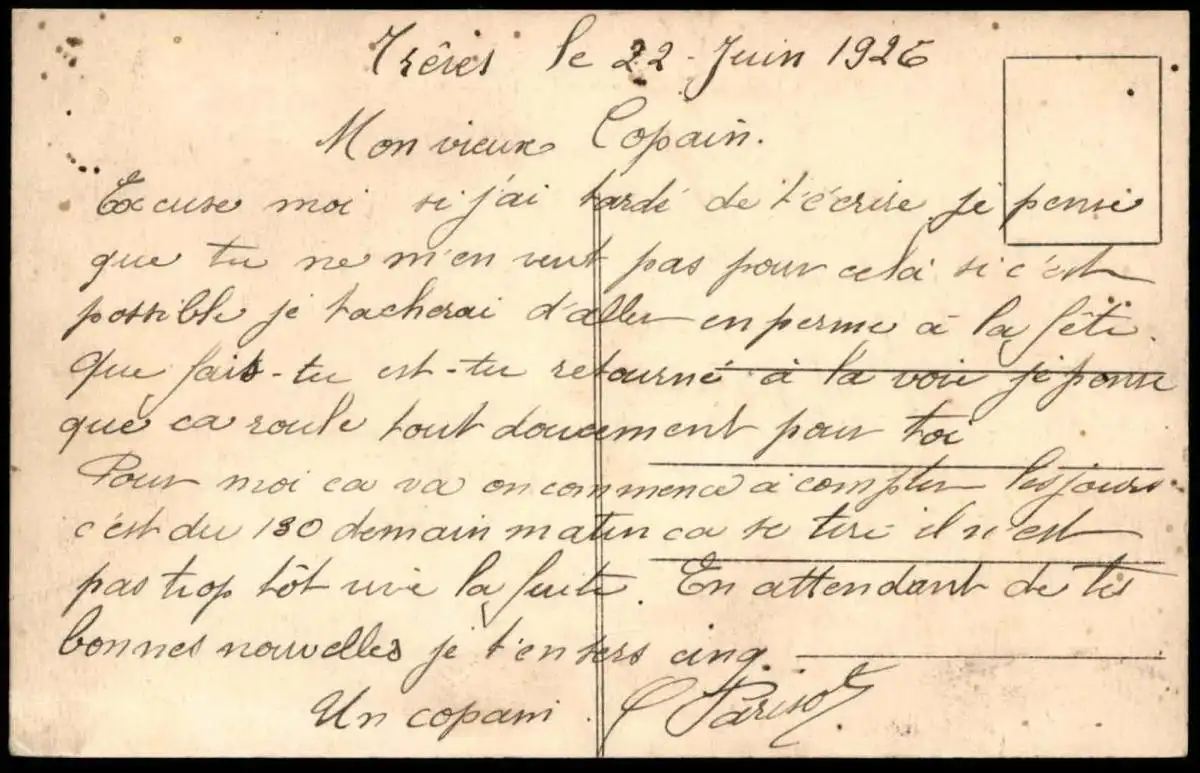 Trêves le 22 - Juin 1926
Mon vieux Copain.
Excuse moi si j'ai tardé de t'écrire je pense
que tu ne m'en veut pas pour celà si c'est
possible je tacherai d'aller en perme à la fête.
Que fais-tu est-tu retourné à la voie je pense
que ca roule tout doucement pour toi
Pour moi ca va on commence à compter les jours
c'est du 130 demain matin ca se tire il n'est
pas trop tôt vive la fuite. En attendant de tes
bonnes nouvelles je t'en sers cinq.
Un copain. Parisot